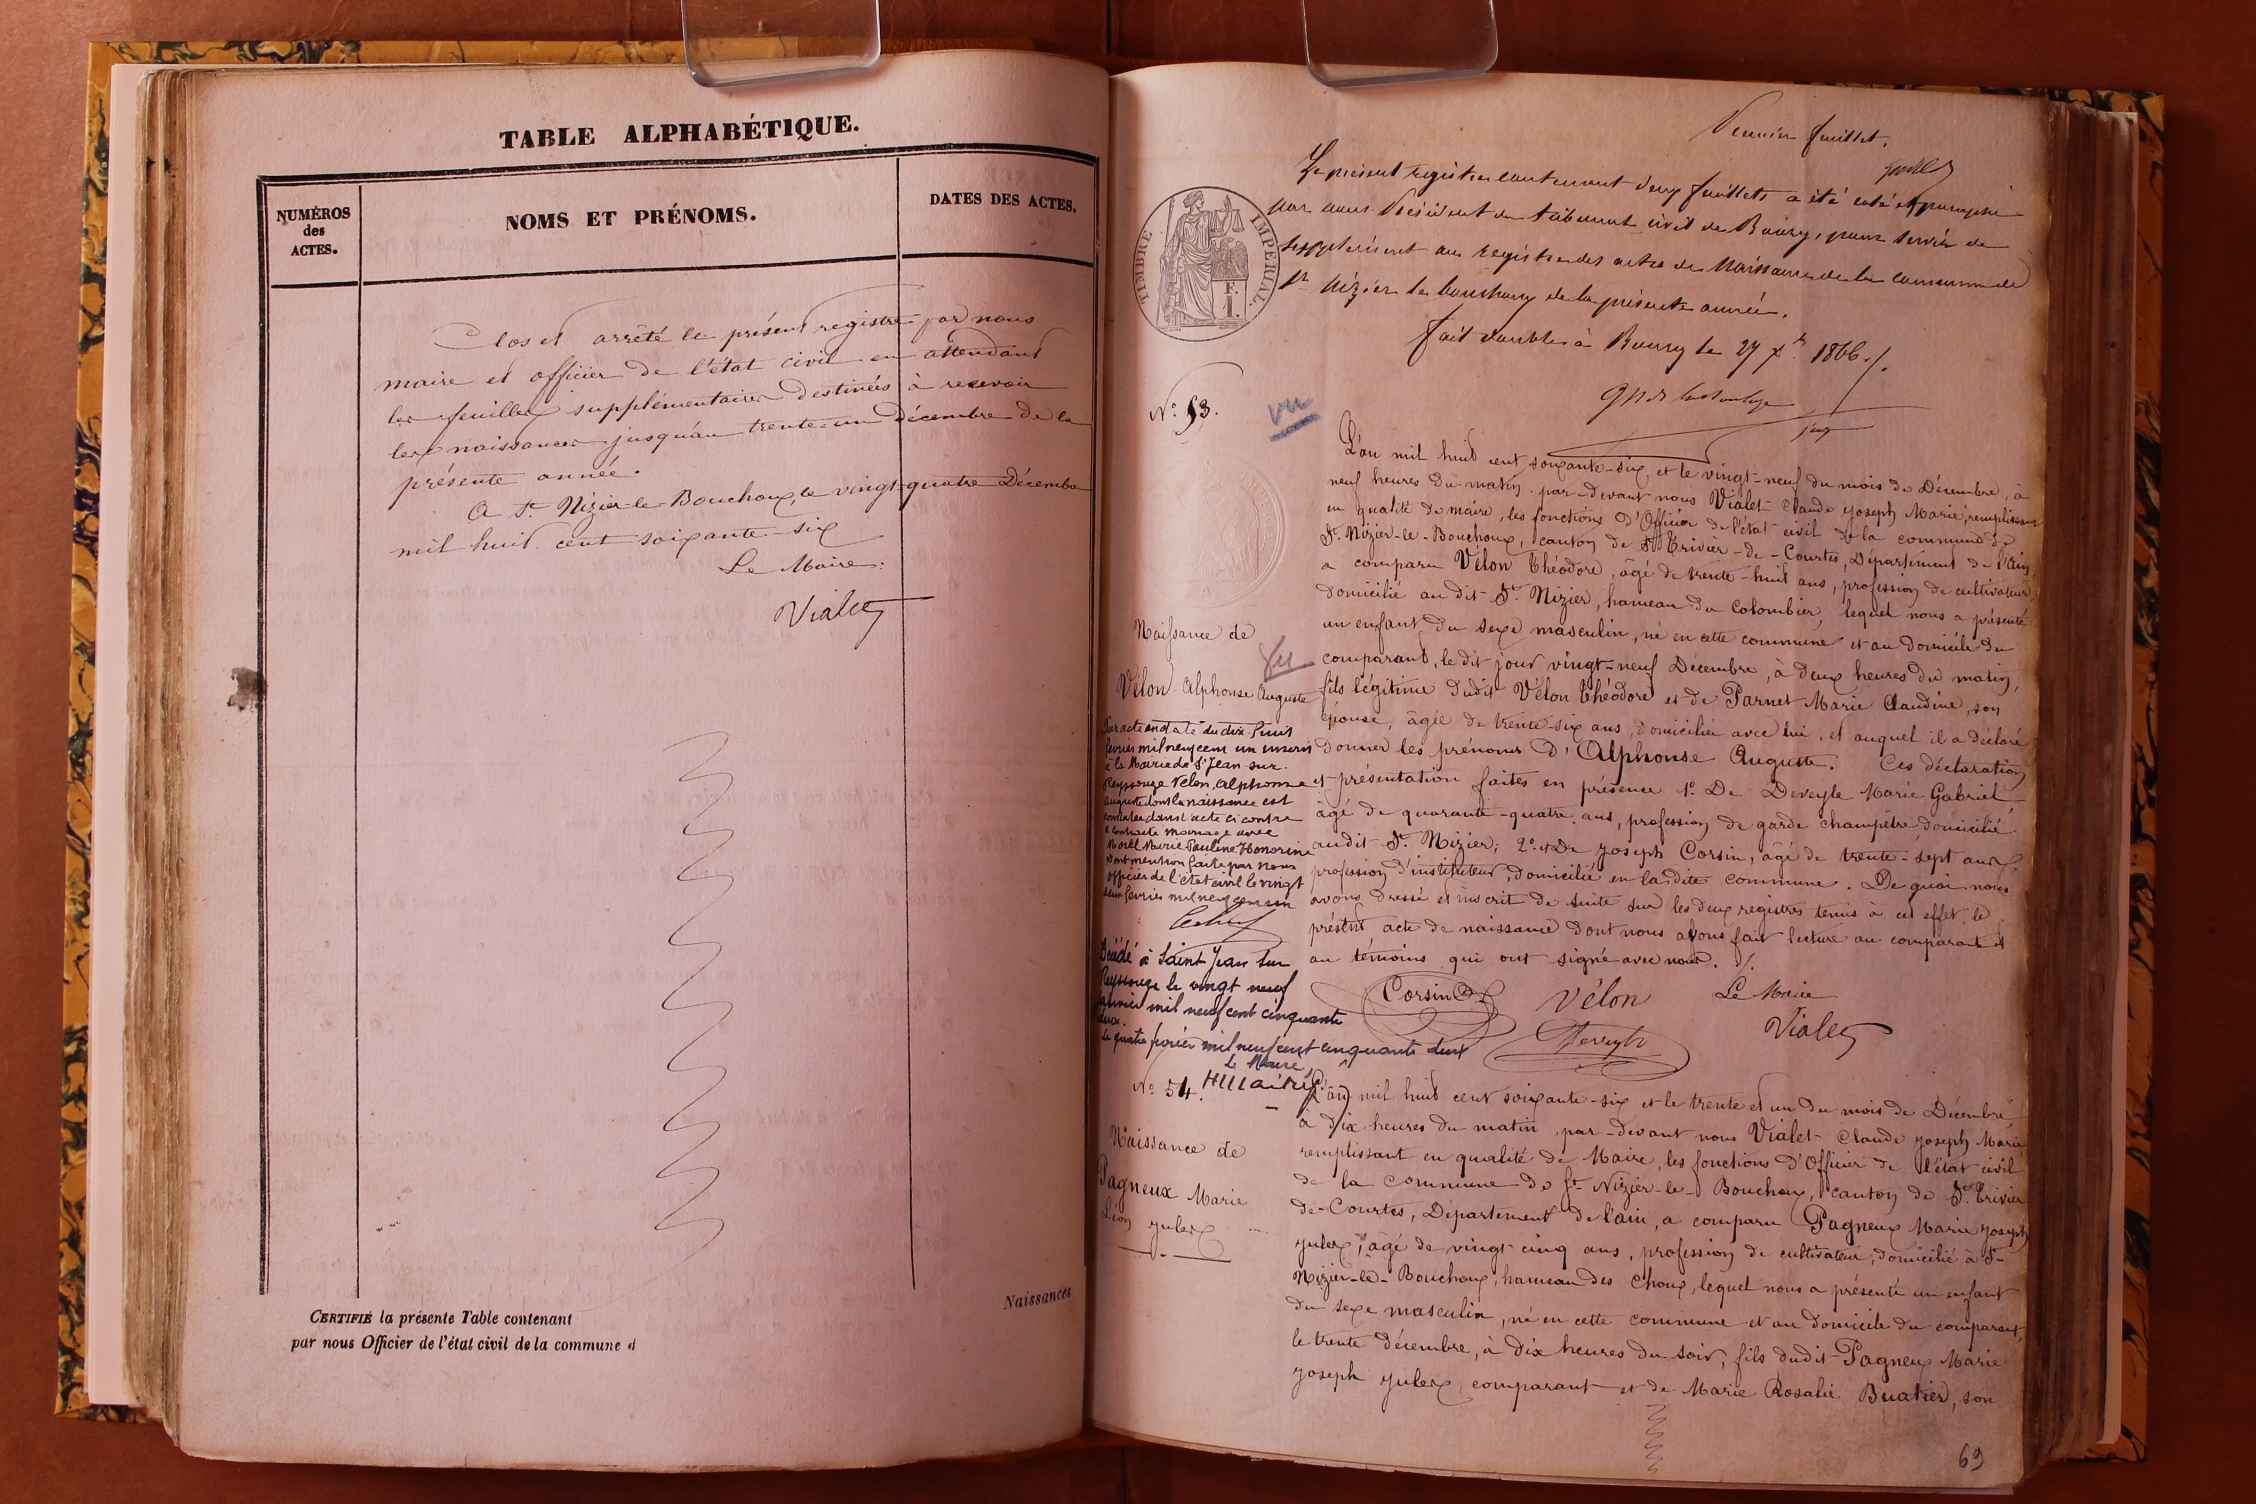 TABLE ALPHABÉTIQUE.
NUMÉROS
des
ACTES.
NOMS ET PRÉNOMS.
DATES DES ACTES.
Clos et arrêté le présent registre par nous
maire et officier de l'état civil en attendant
les feuilles supplémentaires destinées à recevoir
les naissances jusqu'au trente-un décembre de la
présente année.
A St. Nizier-le-Bouchoux, le vingt-quatre Décembre
mil huit cent soixante-six
Le Maire:
Vialet
Naissances
CERTIFIÉ la présente Table contenant
par nous Officier de l'état civil de la commune d
feuillet.
Le présent registre contenant deux feuillets a été coté et paraphé
par nous Président du tribunal civil de Bourg, pour servir de
supplément au registre des actes de Naissance de la commune de
St Nizier le bouchoux de la présente année.
fait double à Bourg le 27 Xbre 1866./.
TIMBRE IMPÉRIAL.
No. 53.
vu
L'an mil huit cent soixante-six, et le vingt-neuf du mois de Décembre, à
neuf heures du matin, par-devant nous Vialet Claude Joseph Marie, remplissant
en qualité de maire, les fonctions d'Officier de l'état civil de la commune de
St. Nizier-le-Bouchoux, canton de St Trivier-de-Courtes, Département de l'Ain,
a comparu Vélon Théodore, âgé de trente-huit ans, profession de cultivateur,
domicilié au dit St. Nizier, hameau du Colombier, lequel nous a présenté
un enfant du sexe masculin, né en cette commune et au domicile du
comparant, le dit jour vingt-neuf Décembre, à deux heures du matin,
fils légitime dudit Vélon Théodore et de Parnet Marie Claudine, son
épouse, âgée de trente-six ans, domiciliée avec lui, et auquel il a déclaré
donner les prénoms d'Alphonse Auguste. Ces déclaration
et présentation faites en présence 1o. De Deveyle Marie Gabriel
âgé de quarante-quatre ans, profession de garde champêtre, domicilié
audit St. Nizier; 2o. et De Joseph Corsin, âgé de trente-sept ans,
profession d'instituteur, domicilié en la dite commune. De quoi nous
avons dressé et inscrit de suite sur les deux registres tenus à cet effet, le
présent acte de naissance dont nous avons fait lecture au comparant et
au témoins qui ont signé avec nous. /.
Corsin
Vélon
Le Maire
Deveyle
Vialet
Naissance de
Vu
Vélon Alphonse Auguste
Par acte en date du dix huit
février mil neuf cent un inscrit
à la Mairie de St Jean sur
Reyssouze Vélon, Alphonse
Auguste dont la naissance est
constatée dans l'acte ci contre
a contracté mariage avec
Morel Marie Pauline Honorine
Dont mention faite par nous
officier de l'état civil le vingt
deux février mil neuf cent un
Décédé à Saint Jean sur
Reyssouze le vingt neuf
janvier mil neuf cent cinquante
deux.
Le quatre février mil neuf cent cinquante deux
Le Maire,
No. 54.
Naissance de
Pagneux Marie
Léon Jules
L'an mil huit cent soixante-six et le trente et un du mois de Décembre
à dix heures du matin, par-devant nous Vialet Claude Joseph Marie
remplissant en qualité de Maire, les fonctions d'Officier de l'état civil
de la commune de St Nizier-le-Bouchoux, canton de St. Trivier
de-Courtes, Département de l'ain, a comparu Pagneux Marie Joseph
Jules, âgé de vingt-cinq ans, profession de cultivateur, domicilié à St-
Nizier-le-Bouchoux, hameau des Choux, lequel nous a présenté un enfant
du sexe masculin, né en cette commune et au domicile du comparant,
le trente décembre, à dix heures du soir, fils dudit Pagneux Marie
Joseph Jules, comparant et de Marie Rosalie Buatier, son
69